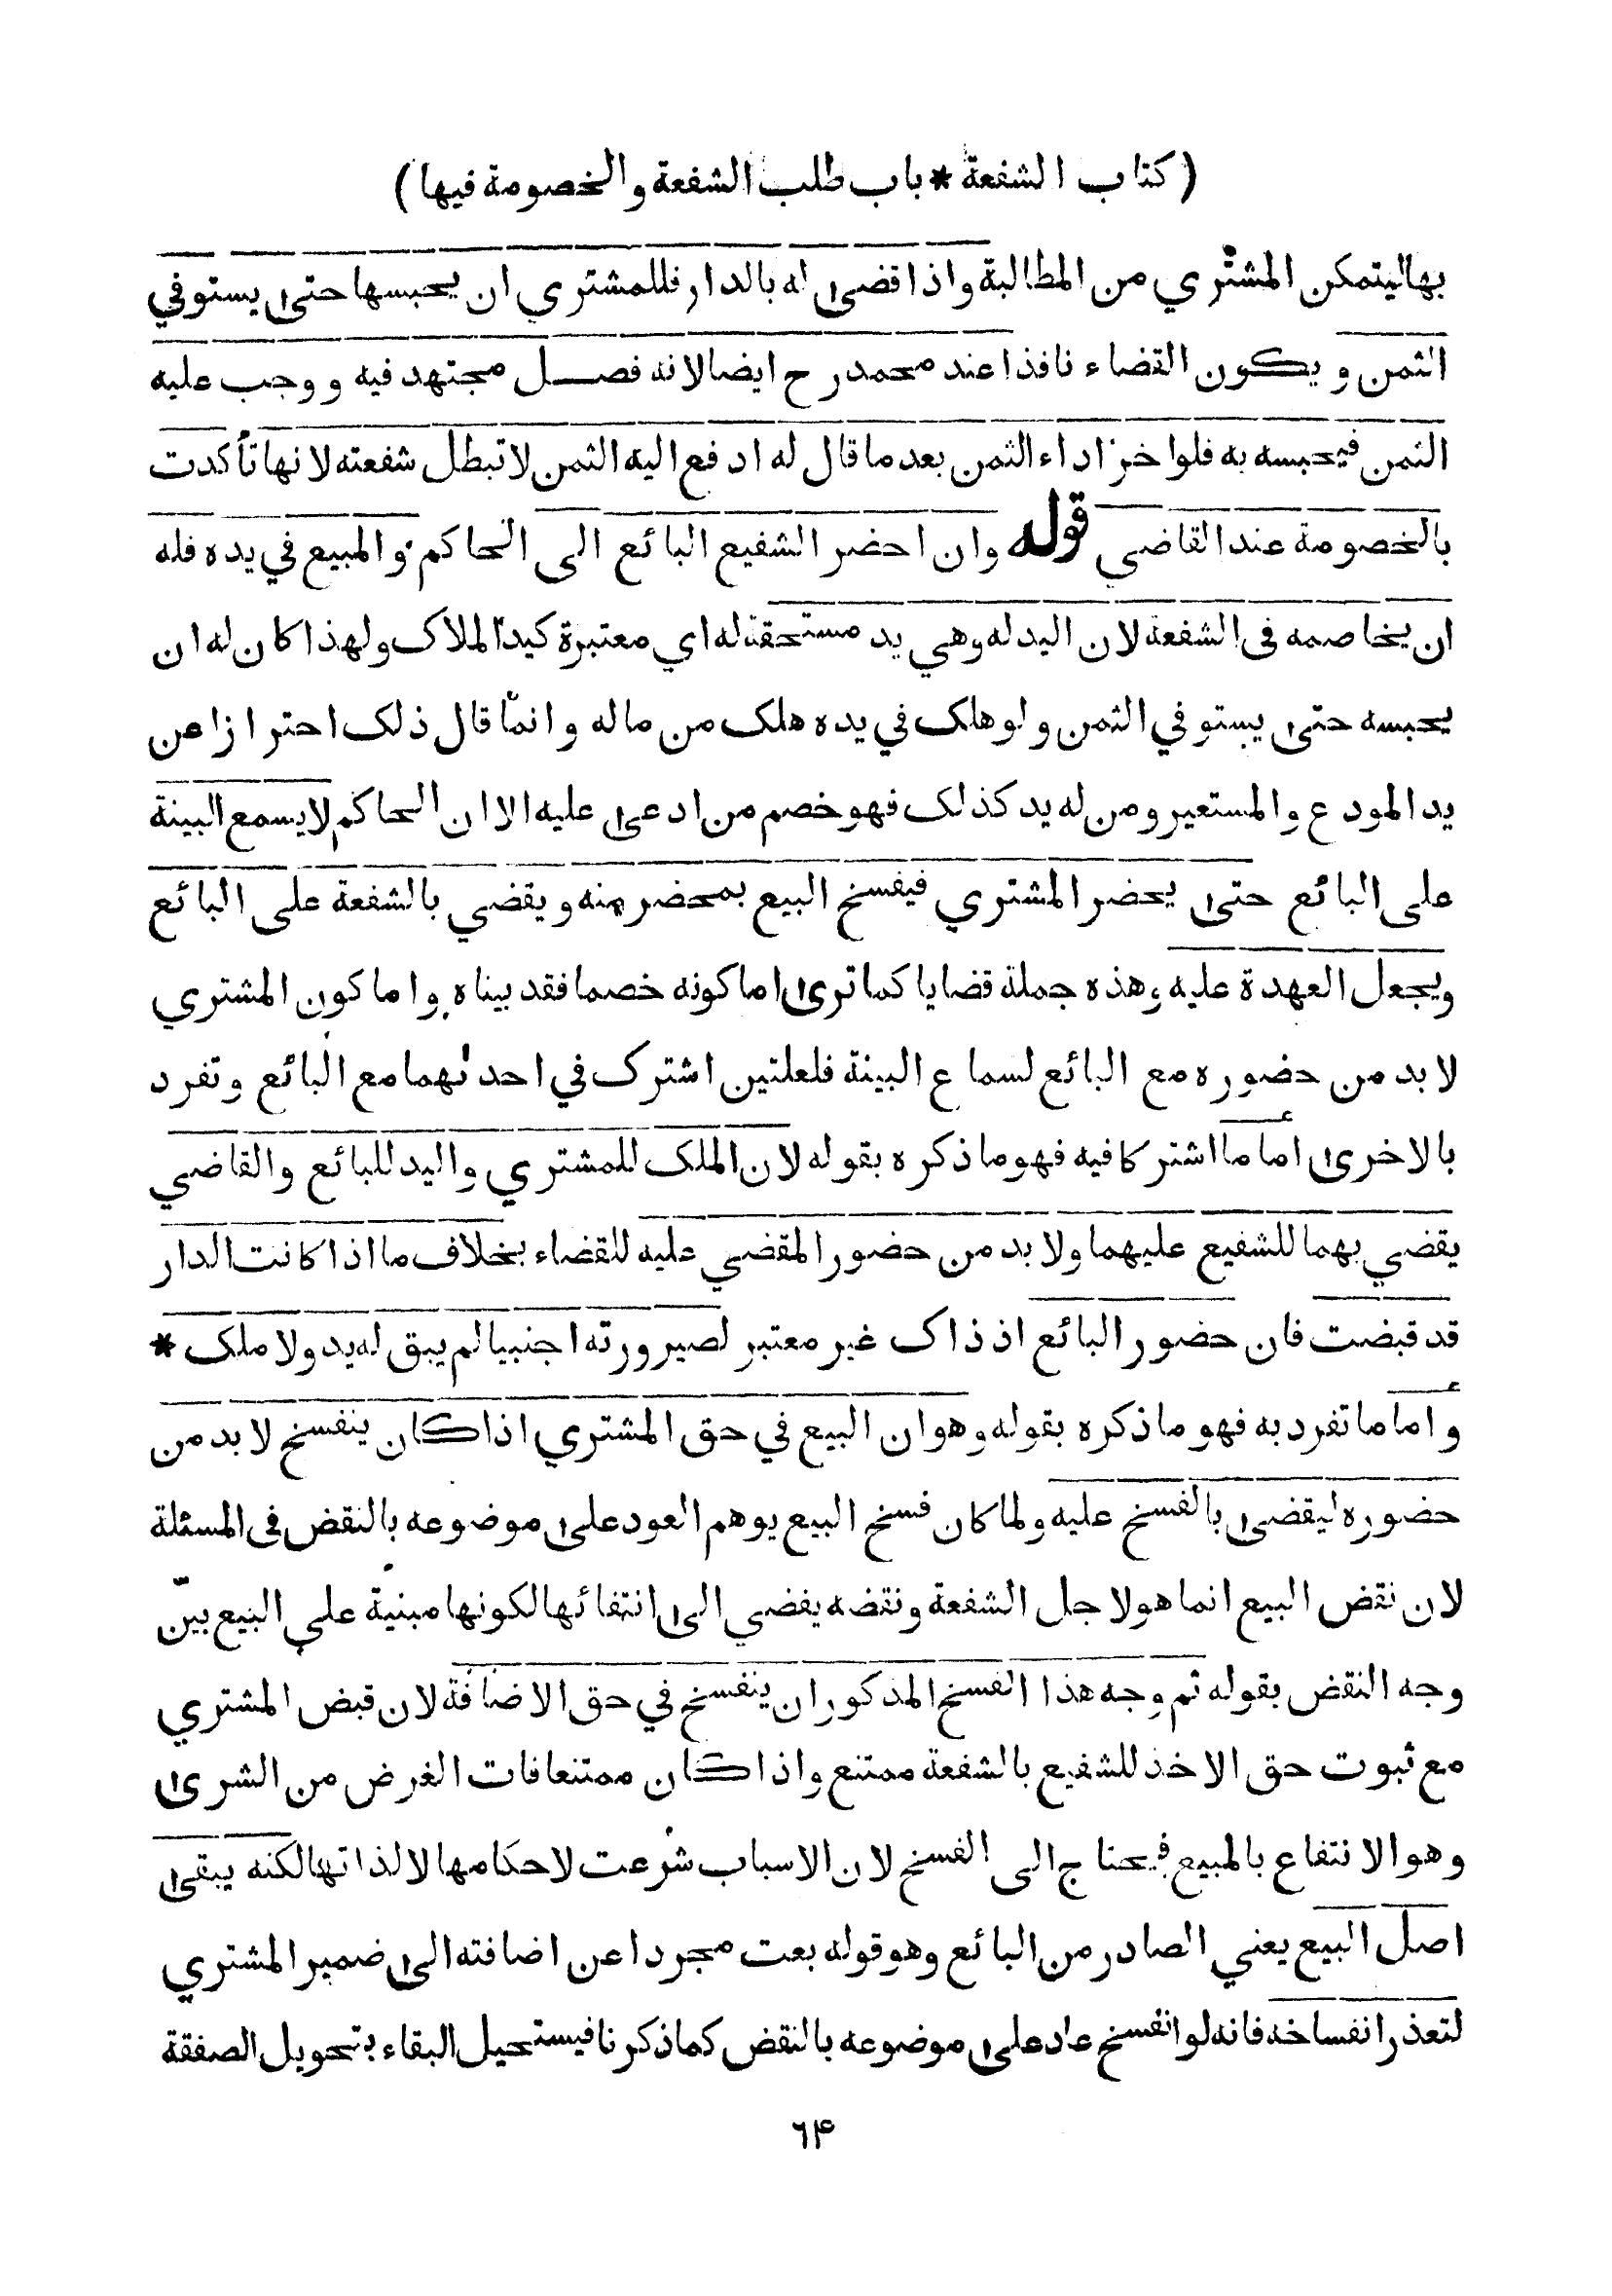 ( كتاب الشفعة * باب طلب الشفعة والخصومة فيها )
بها ليتمكن المشتري من المطالبة واذا قضى له بالدار فللمشتري ان يحبسها حتى يستوفي
الثمن ويكون القضاء نافذا عند محمد رح ايضا لانه فصل مجتهد فيه ووجب عليه
الثمن فيحبسه به فلو اخر اداء الثمن بعد ما قال له ادفع اليه الثمن لا تبطل شفعته لانها تأكدت
بالخصومة عند القاضي قوله وان احضر الشفيع البائع الى الحاكم والمبيع في يده فله
ان يخاصمه في الشفعة لان اليد له وهي يد مستحقة له اي معتبرة كيد الملاك ولهذا كان له ان
يحبسه حتى يستوفي الثمن ولو هلك في يده هلك من ماله وانما قال ذلك احترازا عن
يد المودع والمستعير ومن له يد كذلك فهو خصم من ادعى عليه الا ان الحاكم لا يسمع البينة
على البائع حتى يحضر المشتري فيفسخ البيع بمحضر منه ويقضي بالشفعة على البائع
ويجعل العهدة عليه وهذه جملة قضايا كما ترى اما كونه خصما فقد بيناه واما كون المشتري
لا بد من حضوره مع البائع لسماع البينة فلعلتين اشترك في احدٰهما مع البائع وتفرد
بالاخرى أما ما اشتركا فيه فهو ما ذكره بقوله لان الملك للمشتري واليد للبائع والقاضي
يقضي بهما للشفيع عليهما ولا بد من حضور المقضي عليه للقضاء بخلاف ما اذا كانت الدار
قد قبضت فان حضور البائع اذ ذاك غير معتبر لصيرورته اجنبيا لم يبق له يد ولا ملك *
وأما ما تفرد به فهو ما ذكره بقوله وهو ان البيع في حق المشتري اذا كان ينفسخ لا بد من
حضوره ليقضى بالفسخ عليه ولما كان فسخ البيع يوهم العود على موضوعه بالنقض في المسئلة
لان نقض البيع انما هو لاجل الشفعة ونقضه يفضي الى انتفائها لكونها مبنية على البيع بيّن
وجه النقض بقوله ثم وجه هذا الفسخ المذكور ان ينفسخ في حق الاضافة لان قبض المشتري
مع ثبوت حق الاخذ للشفيع بالشفعة ممتنع واذا كان ممتنعا فات الغرض من الشرى
وهو الانتفاع بالمبيع فيحتاج الى الفسخ لان الاسباب شرعت لاحكامها لا لذاتها لكنه يبقى
اصل البيع يعني الصادر من البائع وهو قوله بعت مجردا عن اضافته الى ضمير المشتري
لتعذر انفساخه فانه لو انفسخ عاد على موضوعه بالنقض كما ذكرنا فيستحيل البقاء بتحويل الصفقة
۶۴